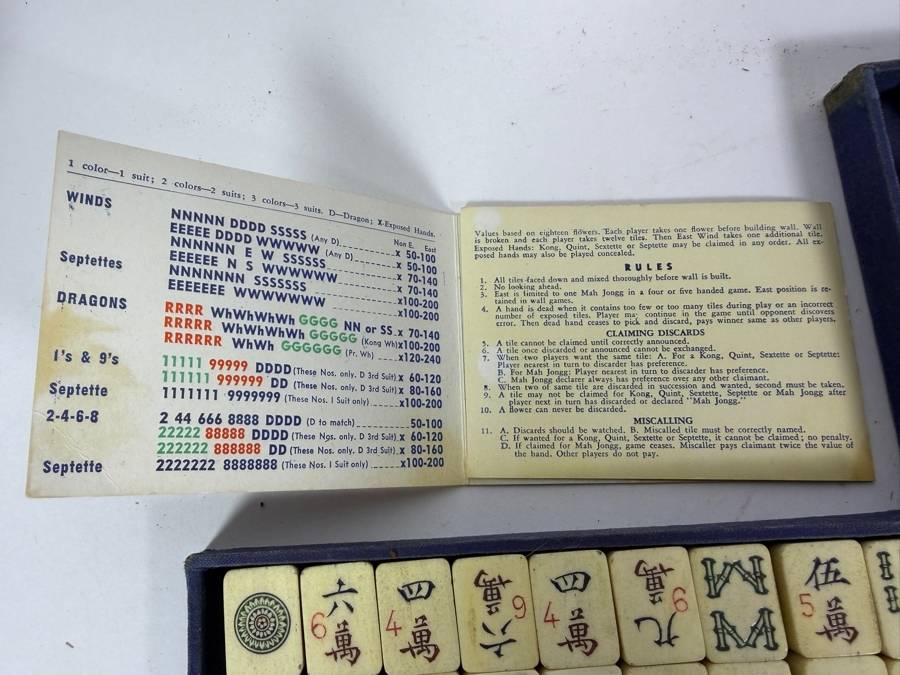 1 color—1 suit; 2 colors—2 suits; 3 colors—3 suits. D—Dragon; X-Exposed Hands.
Non E. East
WINDS
NNNNN DDDD SSSSS (Any D) X 50-100
EEEEE DDDD WWWWW (Any D) X 50-100
NNNNNN E W SSSSSS X 70-140
EEEEEE N S WWWWWW X 70-140
Septettes
NNNNNNN SSSSSSS X100-200
EEEEEEE WWWWWWW X100-200
DRAGONS
RRRR WhWhWhWh GGGG NN or SS X 70-140
RRRRR WhWhWhWh GGGGG (Kong Wh) X100-200
RRRRRR WhWh GGGGGG (Pr. Wh) X120-240
1's & 9's
11111 99999 DDDD (These Nos. only, D 3rd Suit) X 60-120
111111 999999 DD (These Nos. only, D 3rd Suit) X 80-160
Septette
1111111 9999999 (These Nos. 1 Suit only) X100-200
2-4-6-8
2 44 666 8888 DDDD (D to match) 50-100
22222 88888 DDDD (These Nos. only, D 3rd Suit) X 60-120
222222 888888 DD (These Nos. only, D 3rd Suit) X 80-160
Septette
2222222 8888888 (These Nos. 1 Suit only) X100-200
Values based on eighteen flowers. Each player takes one flower before building wall. Wall
is broken and each player takes twelve tiles. Then East Wind takes one additional tile.
Exposed Hands: Kong, Quint, Sextette or Septette may be claimed in any order. All ex-
posed hands may also be played concealed.
RULES
1. All tiles faced down and mixed thoroughly before wall is built.
2. No looking ahead.
3. East is limited to one Mah Jongg in a four or five handed game. East position is re-
tained in wall games.
4. A hand is dead when it contains too few or too many tiles during play or an incorrect
number of exposed tiles. Player may continue in the game until opponent discovers
error. Then dead hand ceases to pick and discard, pays winner same as other players.
CLAIMING DISCARDS
5. A tile cannot be claimed until correctly announced.
6. A tile once discarded or announced cannot be exchanged.
7. When two players want the same tile: A. For a Kong, Quint, Sextette or Septette:
Player nearest in turn to discarder has preference.
B. For Mah Jongg: Player nearest in turn to discarder has preference.
C. Mah Jongg declarer always has preference over any other claimant.
8. When two of same tile are discarded in succession and wanted, second must be taken.
9. A tile may not be claimed for Kong, Quint, Sextette, Septette or Mah Jongg after
player next in turn has discarded or declared "Mah Jongg."
10. A flower can never be discarded.
MISCALLING
11. A. Discards should be watched. B. Miscalled tile must be correctly named.
C. If wanted for a Kong, Quint, Sextette or Septette, it cannot be claimed; no penalty.
D. If claimed for Mah Jongg, game ceases. Miscaller pays claimant twice the value of
the hand. Other players do not pay.
六 6 萬
四 4 萬
六 9 萬
四 4 萬
九 9 萬
伍 5 萬